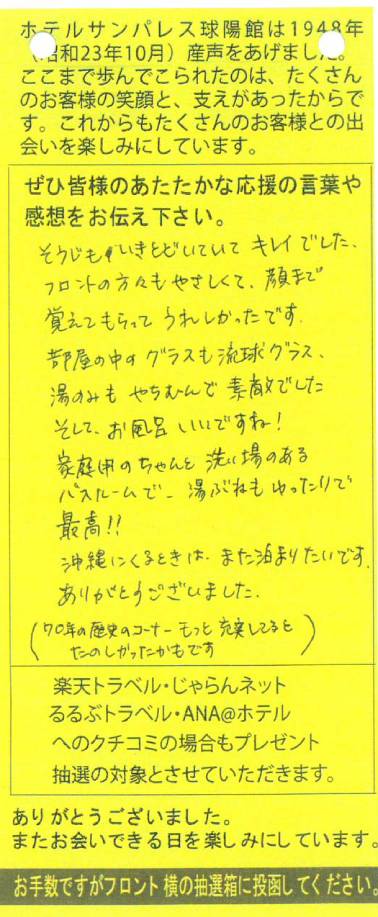 ホテルサンパレス球陽館は1948年
（昭和23年10月）産声をあげました。
ここまで歩んでこられたのは、たくさん
のお客様の笑顔と、支えがあったからで
す。これからもたくさんのお客様との出
会いを楽しみにしています。
ぜひ皆様のあたたかな応援の言葉や
感想をお伝え下さい。
そうじもいきとどいていて キレイでした、
フロントの方々もやさしくて、顔まで
覚えてもらって うれしかったです。
部屋の中のグラスも流球グラス、
湯のみも やちむんで 素敵でした
そして、お風呂 いいですね!
家庭用のちゃんと 洗い場のある
バスルームで、湯ぶねもゆったりで
最高!!
沖縄にくるときは、また泊まりたいです。
ありがとうございました。
(70年の歴史のコーナーもっと充実してると
たのしかったかもです)
楽天トラベル・じゃらんネット
るるぶトラベル・ANA@ホテル
へのクチコミの場合もプレゼント
抽選の対象とさせていただきます。
ありがとうございました。
またお会いできる日を楽しみにしています。
お手数ですがフロント横の抽選箱に投函してください。